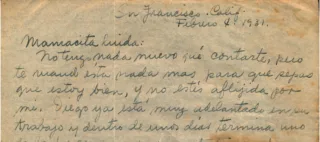 San Francisco. Calif.
Febrero 4. 1931.
Mamacita linda:
No tengo nada nuevo qué contarte, pero
te mando ésta nada mas, para que sepas
que estoy bien, y no estés aflijida por
mí. Diego ya está muy adelantado en su
trabajo y dentro de unos dias termina uno